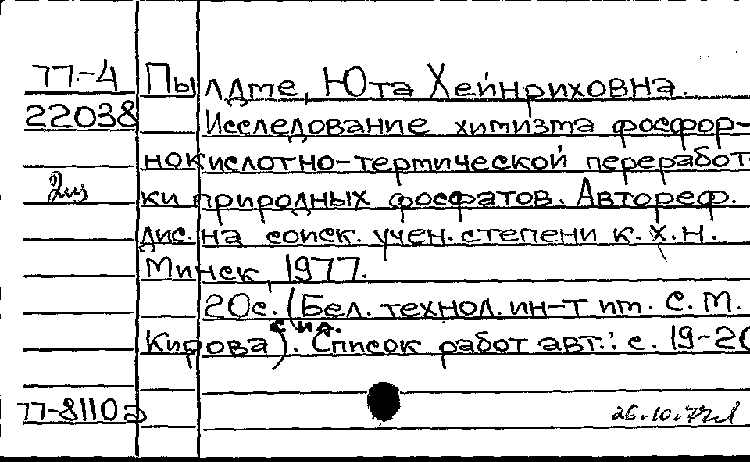 77-4 Пылдме, Юта Хейнриховна.
22038 Исследование химизма фосфор-
нокислотно-термической переработ-
ки природных фосфатов. Автореф.
дис. на соиск. учен. степени к.х.н.
Минск, 1977.
20с. (Бел. технол. ин-т им. С.М.
с ил.
Кирова). Список работ авт.: с. 19-20
77-8110а 26.10.77